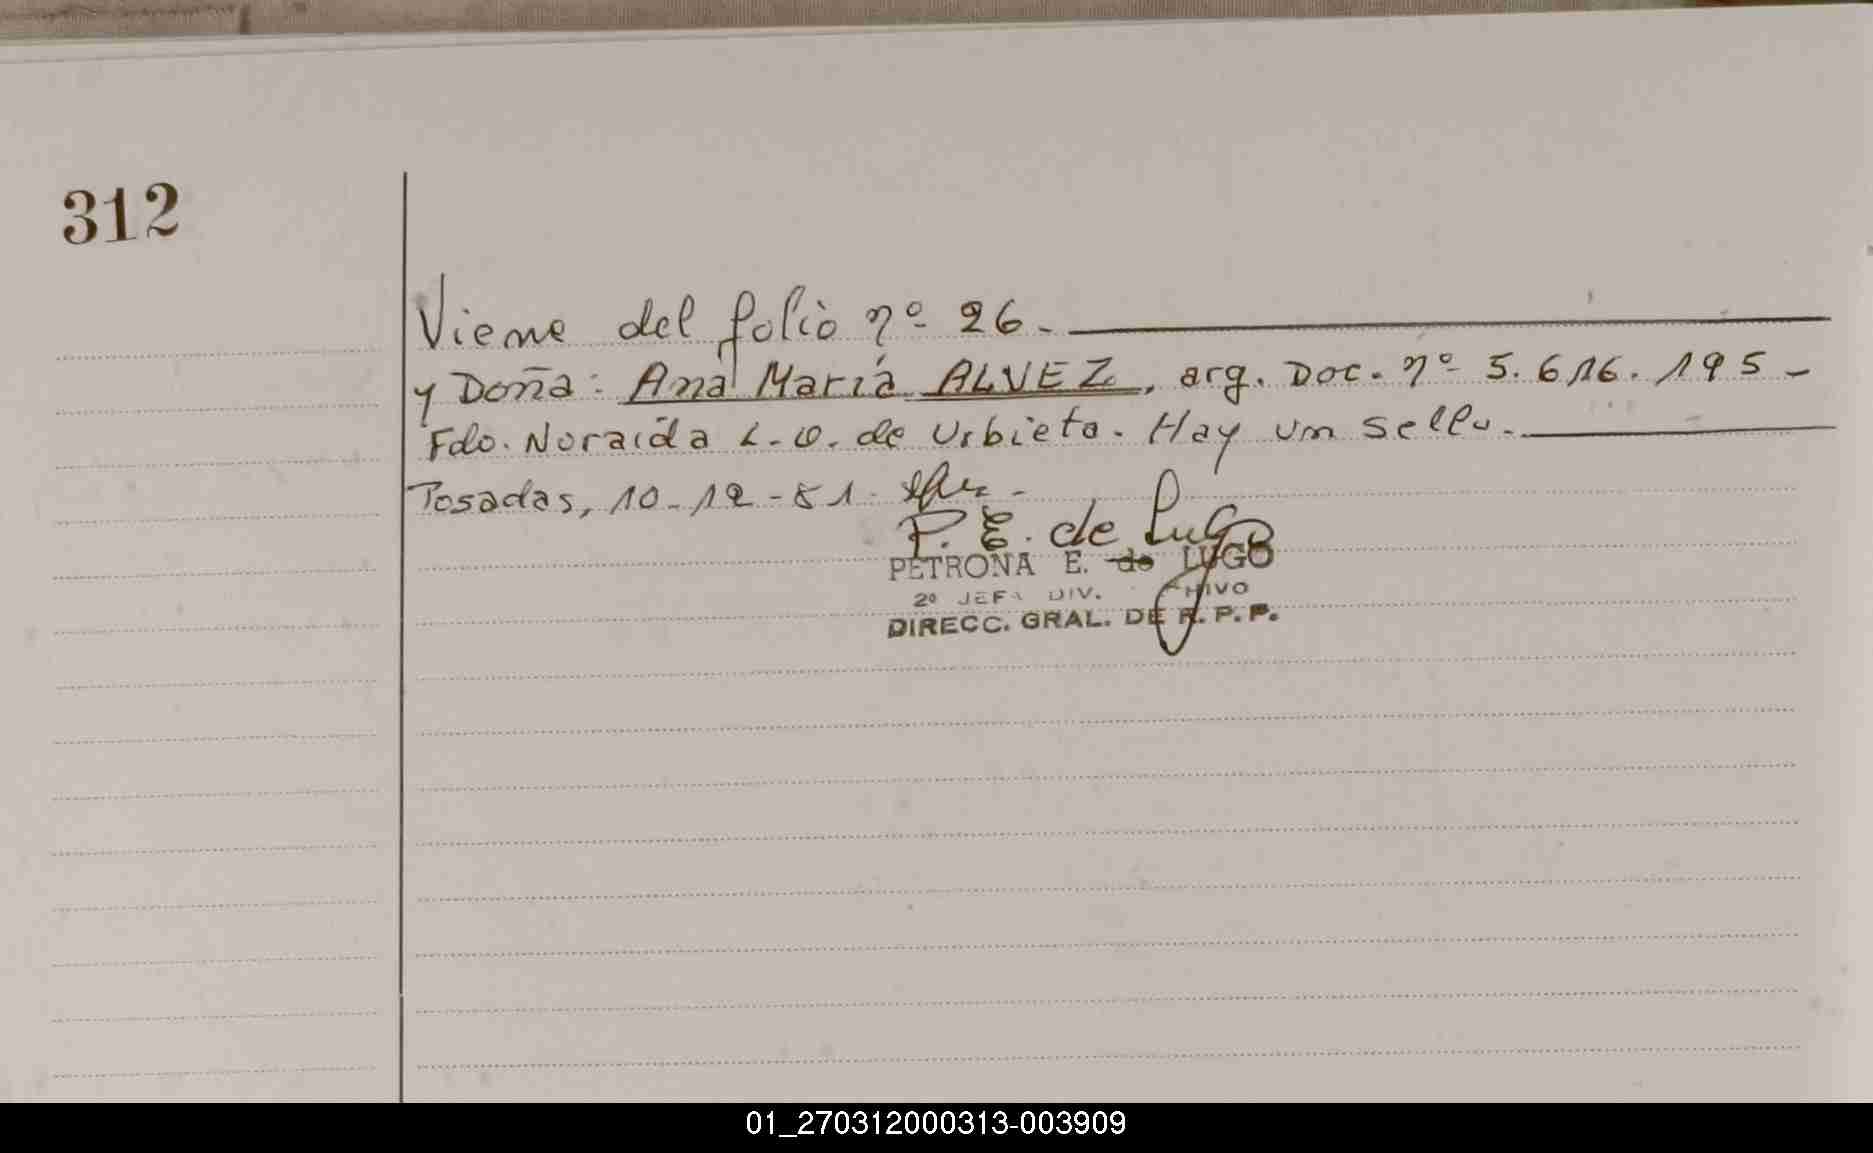 312
Viene del folio nº 26.
y Doña: Ana María ALVEZ, arg. Doc. nº 5.616.195 -
Fdo. Noraída L. O. de Urbieta. Hay un sello.
Posadas, 10-12-81.
P. E. de Lugo
PETRONA E. de LUGO
2º JEFA DIV. HIVO
DIRECC. GRAL. DE R. P. P.
01_270312000313-003909